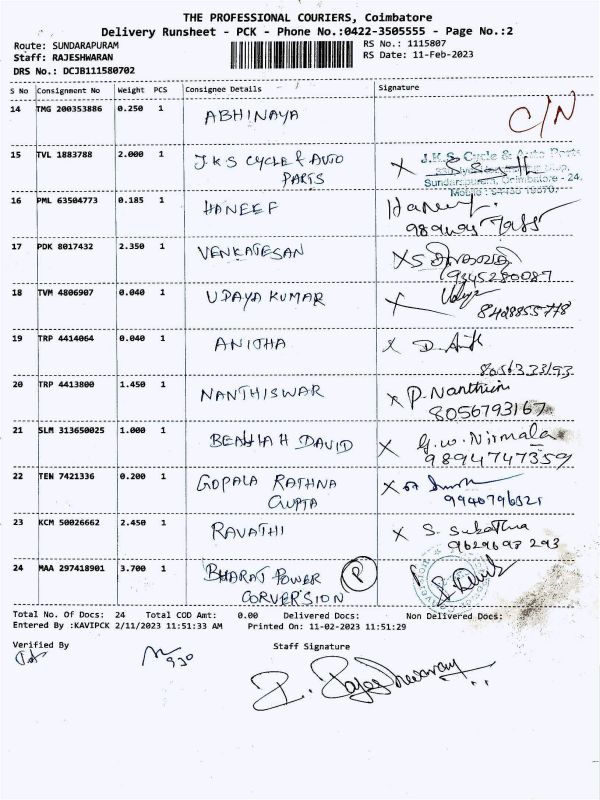 THE PROFESSIONAL COURIERS, Coimbatore
Delivery Runsheet - PCK - Phone No.:0422-3505555 - Page No.:2
Route: SUNDARAPURAM
RS No.: 1115807
Staff: RAJESHWARAN
RS Date: 11-Feb-2023
DRS No.: DCJB111580702
S No Consignment No Weight PCS Consignee Details Signature
14 TMG 200353886 0.250 1 ABHINAYA C/N
15 TVL 1883788 2.000 1 J.K.S CYCLE & AUTO PARTS X
J.K.S. Cycle & Auto Parts
Sundarapuram, Coimbatore - 24.
16 PML 63504773 0.185 1 HANEEF Haneef.
17 PDK 8017432 2.350 1 VENKATESAN X
9345280087
18 TVM 4806907 0.040 1 UDAYA KUMAR X Udaya
8428855778
19 TRP 4414064 0.040 1 ANITHA
8056333193
20 TRP 4413800 1.450 1 NANTHISWAR X P. Nanthini
8056793167
21 SLM 313650025 1.000 1 BEAHIAH DAVID X G.W. Nirmala
9894747359
22 TEN 7421336 0.200 1 GOPALA RATHNA GUPTA X
9940796321
23 KCM 50026662 2.450 1 RAVATHI X S. Sukathna
9629693 293
24 MAA 297418901 3.700 1 BHARAT POWER CORVERSION P
Total No. Of Docs: 24 Total COD Amt: 0.00 Delivered Docs: Non Delivered Docs:
Entered By :KAVIPCK 2/11/2023 11:51:33 AM Printed On: 11-02-2023 11:51:29
Verified By
Staff Signature
930
R. Rajeshwaran